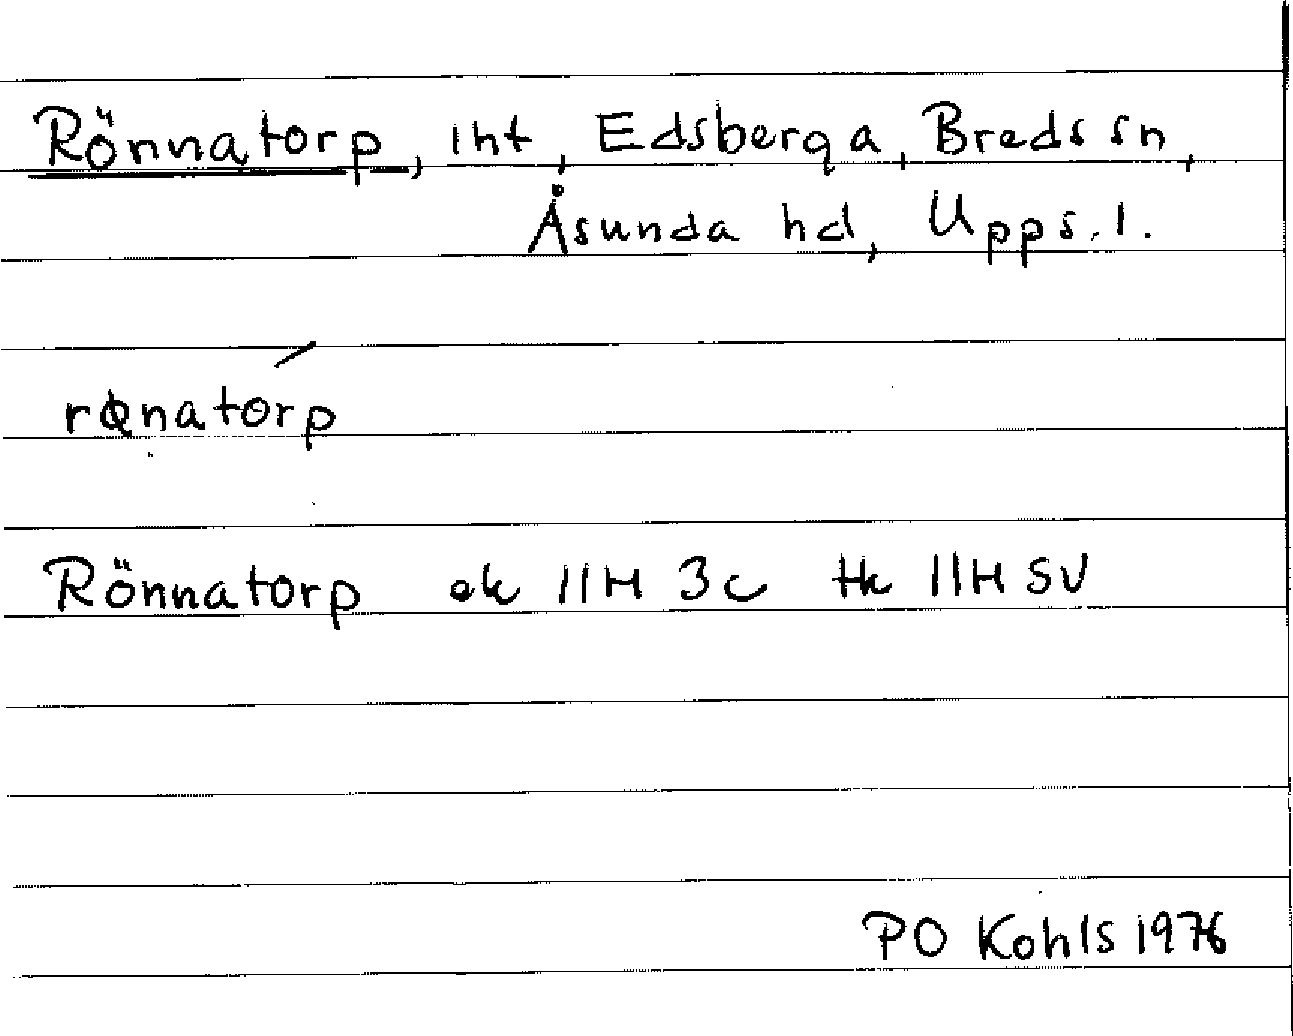 Rönnatorp, int, Edsberga, Breds sn,
Åsunda hd, Upps. l.
rønatorp
Rönnatorp ek 11H 3c tk 11H SV
PO Kohls 1976